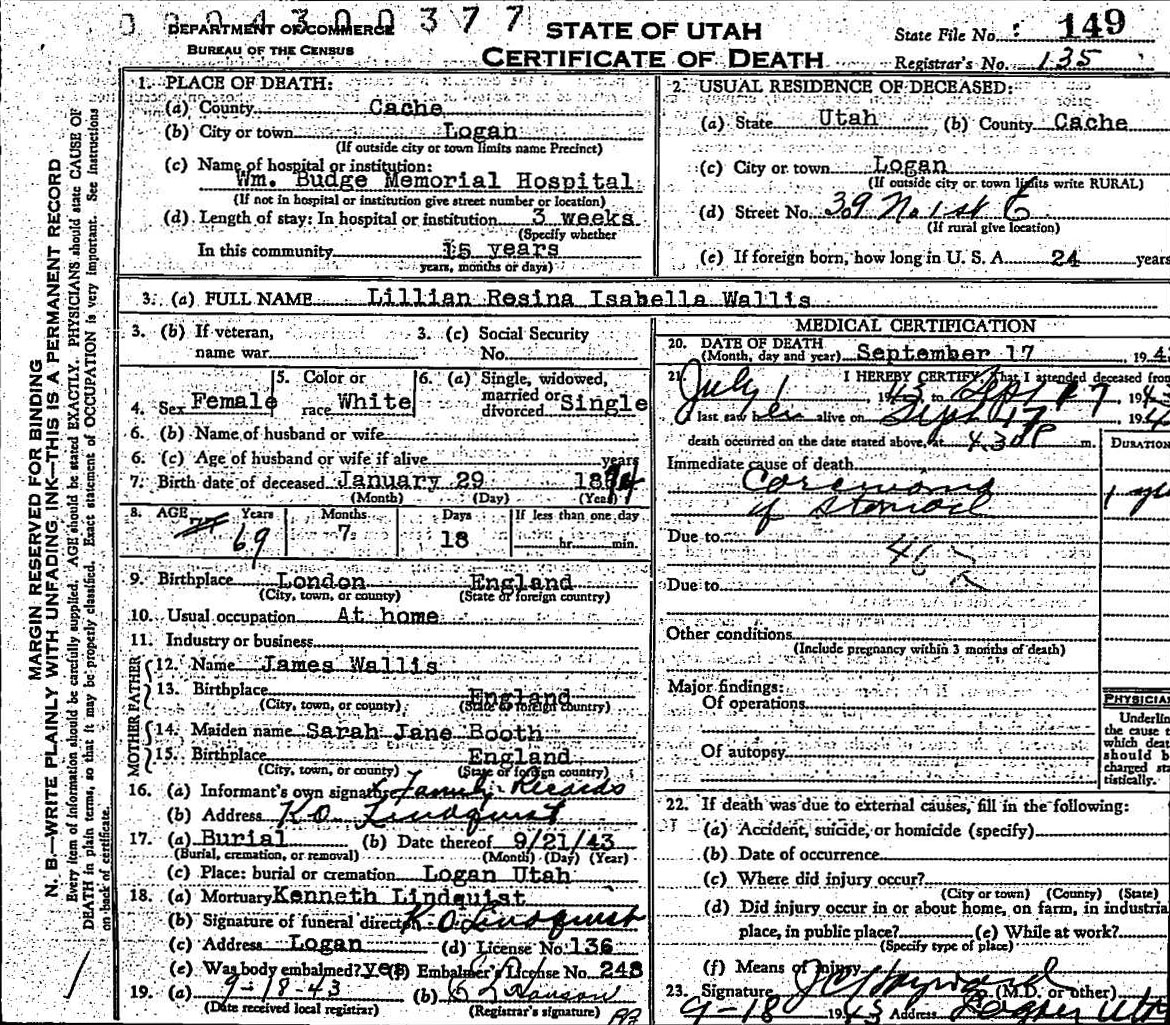 0 0 0 4 3 0 0 3 7 7
DEPARTMENT OF COMMERCE
BUREAU OF THE CENSUS
STATE OF UTAH
CERTIFICATE OF DEATH
State File No. : 149
Registrar's No. 135
MARGIN RESERVED FOR BINDING
N. B—WRITE PLAINLY WITH UNFADING INK—THIS IS A PERMANENT RECORD
Every item of information should be carefully supplied. AGE should be stated EXACTLY. PHYSICIANS should state CAUSE OF
DEATH in plain terms, so that it may be properly classified. Exact statement of OCCUPATION is very important. See instructions
on back of certificate.
1. PLACE OF DEATH:
(a) County Cache
(b) City or town Logan
(If outside city or town limits name Precinct)
(c) Name of hospital or institution:
Wm. Budge Memorial Hospital
(If not in hospital or institution give street number or location)
(d) Length of stay: In hospital or institution 3 weeks
(Specify whether
In this community 15 years
years, months or days)
2. USUAL RESIDENCE OF DECEASED:
(a) State Utah (b) County Cache
(c) City or town Logan
(If outside city or town limits write RURAL)
(d) Street No. 39 No. 1st E
(If rural give location)
(e) If foreign born, how long in U. S. A. 24 years
3. (a) FULL NAME Lillian Rosina Isabella Wallis
3. (b) If veteran,
name war
3. (c) Social Security
No.
4. Sex Female
5. Color or
race White
6. (a) Single, widowed,
married or
divorced Single
6. (b) Name of husband or wife
6. (c) Age of husband or wife if alive years
7. Birth date of deceased January 29 1874
(Month) (Day) (Year)
8. AGE Years Months Days If less than one day
69 7 18 hr. min.
9. Birthplace London England
(City, town, or county) (State or foreign country)
10. Usual occupation At home
11. Industry or business
FATHER
12. Name James Wallis
13. Birthplace England
(City, town, or county) (State or foreign country)
MOTHER
14. Maiden name Sarah Jane Booth
15. Birthplace England
(City, town, or county) (State or foreign country)
16. (a) Informant's own signature Family Records
(b) Address K.O. Lindquist
17. (a) Burial (b) Date thereof 9/21/43
(Burial, cremation, or removal) (Month) (Day) (Year)
(c) Place: burial or cremation Logan Utah
18. (a) Mortuary Kenneth Lindquist
(b) Signature of funeral director K.O. Lindquist
(c) Address Logan (d) License No. 136
(e) Was body embalmed? yes (f) Embalmer's License No. 248
19. (a) 9-18-43 (b) Hanson
(Date received local registrar) (Registrar's signature)
MEDICAL CERTIFICATION
20. DATE OF DEATH
(Month, day and year) September 17 , 194
21. I HEREBY CERTIFY That I attended deceased from
July 1 , 1943 to Sept 17 , 1943
I last saw her alive on Sept 17 , 194
death occurred on the date stated above, at 4.30 P m.
DURATION
Immediate cause of death
Carcinoma
of stomach
1 y
Due to
46
Due to
Other conditions
(Include pregnancy within 3 months of death)
Major findings:
Of operations
Of autopsy
PHYSICIA
Underlin
the cause t
which deat
should b
charged sta
tistically.
22. If death was due to external causes, fill in the following:
(a) Accident, suicide, or homicide (specify)
(b) Date of occurrence
(c) Where did injury occur?
(City or town) (County) (State)
(d) Did injury occur in or about home, on farm, in industrial
place, in public place? (e) While at work?
(Specify type of place)
(f) Means of injury
23. Signature Hayward (M.D. or other)
9-18 1943 Address Logan Utah